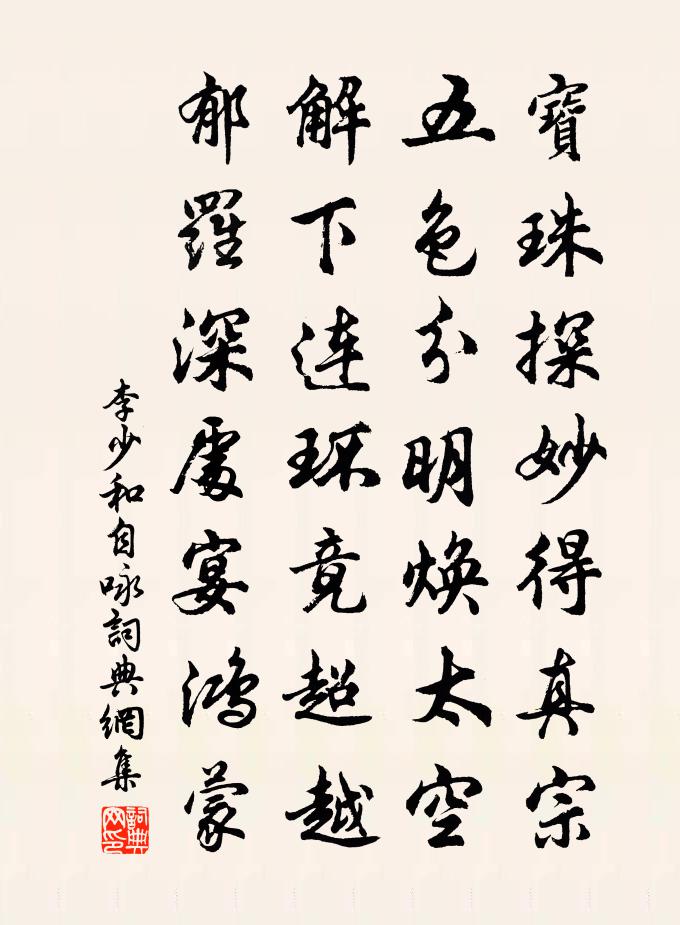 寶珠探妙得真宗
五色分明煥太空
解下連環竟超越
郁羅深處宴鴻蒙
李少和自咏詞典網集
詞典網印